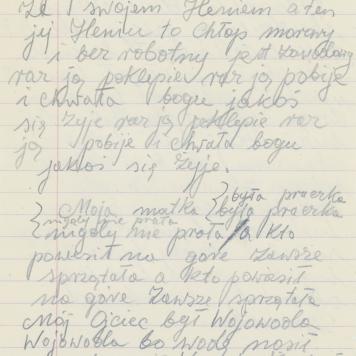 Ze swojem Heniem a ten
jej Heniu to chłop morowy
i bez robotny jest zawodowy
raz ją poklepie raz ją pobije
i chwała bogu jakoś
się żyje raz ją poklepie raz
ją pobije i chwała bogu
jakoś się żyje.
była praczka
Moja matka była praczka
nigdy nie prała
nigdy nie prała a kto
powiesił na górę zawsze
sprzątała a kto powiesił
na górę zawsze sprzątała
Mój Ojciec był Wojowoda
Wojowoda bo wodę nosił